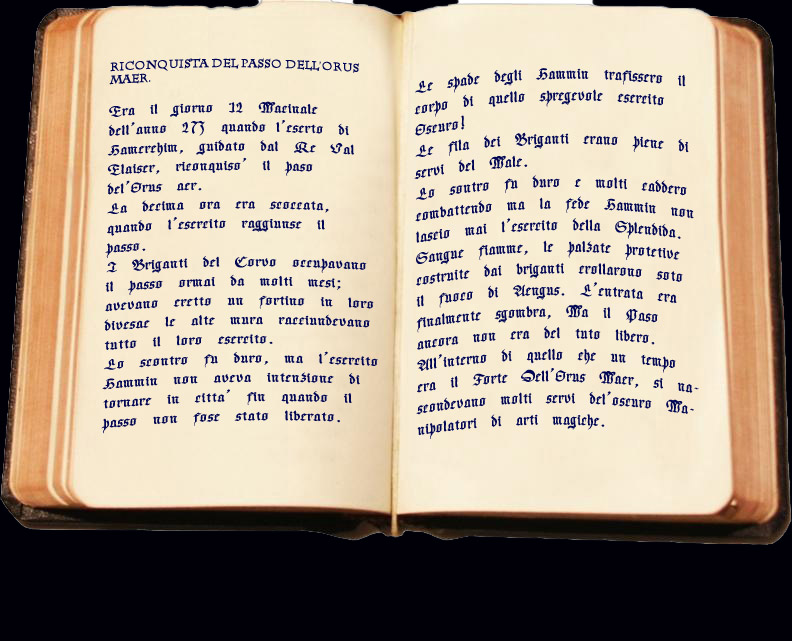 RICONQUISTA DEL PASSO DELL'ORUS
MAER.
Era il giorno 12 Macinale
dell'anno 273 quando l'eserto di
Hamerchim, guidato dal Re Val
Elaiser, riconquiso' il paso
del'Orus aer.
La decima ora era scoccata,
quando l'esercito raggiunse il
passo.
I Briganti del Corvo occupavano
il passo ormai da molti mesi;
avevano eretto un fortino in loro
divesac le alte mura racciundevano
tutto il loro esercito.
Lo scontro fu duro, ma l'esercito
Hammin non aveva intenzione di
tornare in citta' fin quando il
passo non fose stato liberato.
Le spade degli Hammin trafissero il
corpo di quello spregevole esercito
Oscuro!
Le fila dei Briganti erano piene di
servi del Male.
Lo sontro fu duro e molti caddero
combattendo ma la fede Hammin non
lascio mai l'esercito della Splendida.
Sangue fiamme, le palzate protetive
costruite dai briganti crollarono soto
il fuoco di Aengus. L'entrata era
finalmente sgombra, Ma il Paso
ancora non era del tuto libero.
All'interno di quello che un tempo
era il Forte Dell'Orus Maer, si na-
scondevano molti servi del'oscuro Ma-
nipolatori di arti magiche.